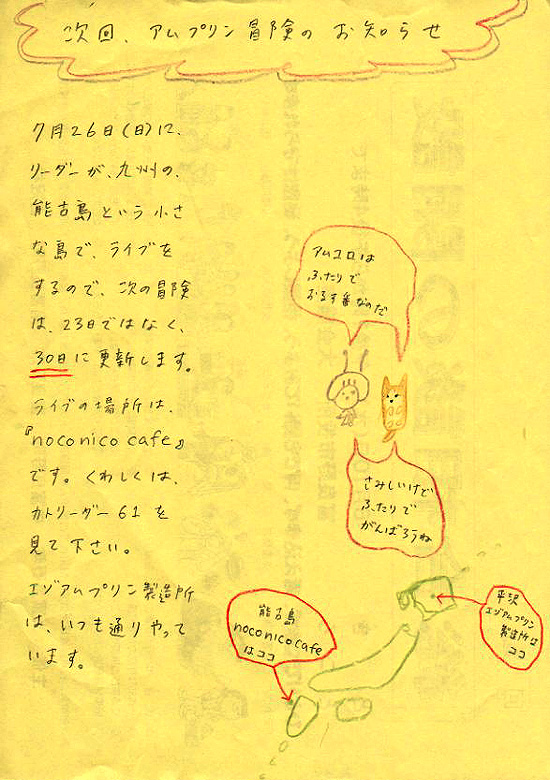 次回、アムプリン冒険のお知らせ
7月26日(日)に、
リーダーが、九州の、
能古島という小さ
な島で、ライブを
するので、次の冒険
は、23日ではなく、
30日に更新します。
ライブの場所は、
『noconico cafe』
です。くわしくは、
カトリーダー61を
見て下さい。
エゾアムプリン製造所
は、いつも通りやって
います。
アムコロは
ふたりで
おるす番なのだ
さみしいけど
ふたりで
がんばろうね
能古島
noconico cafe
はココ
平沢
エゾアムプリン
製造所は
ココ